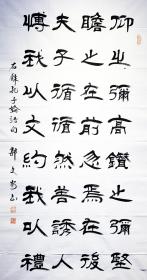 仰之彌高鑽之彌堅
瞻之在前忽焉在後
夫子循循然善誘人
博我以文約我以禮
右錄孔子論語句 郭文